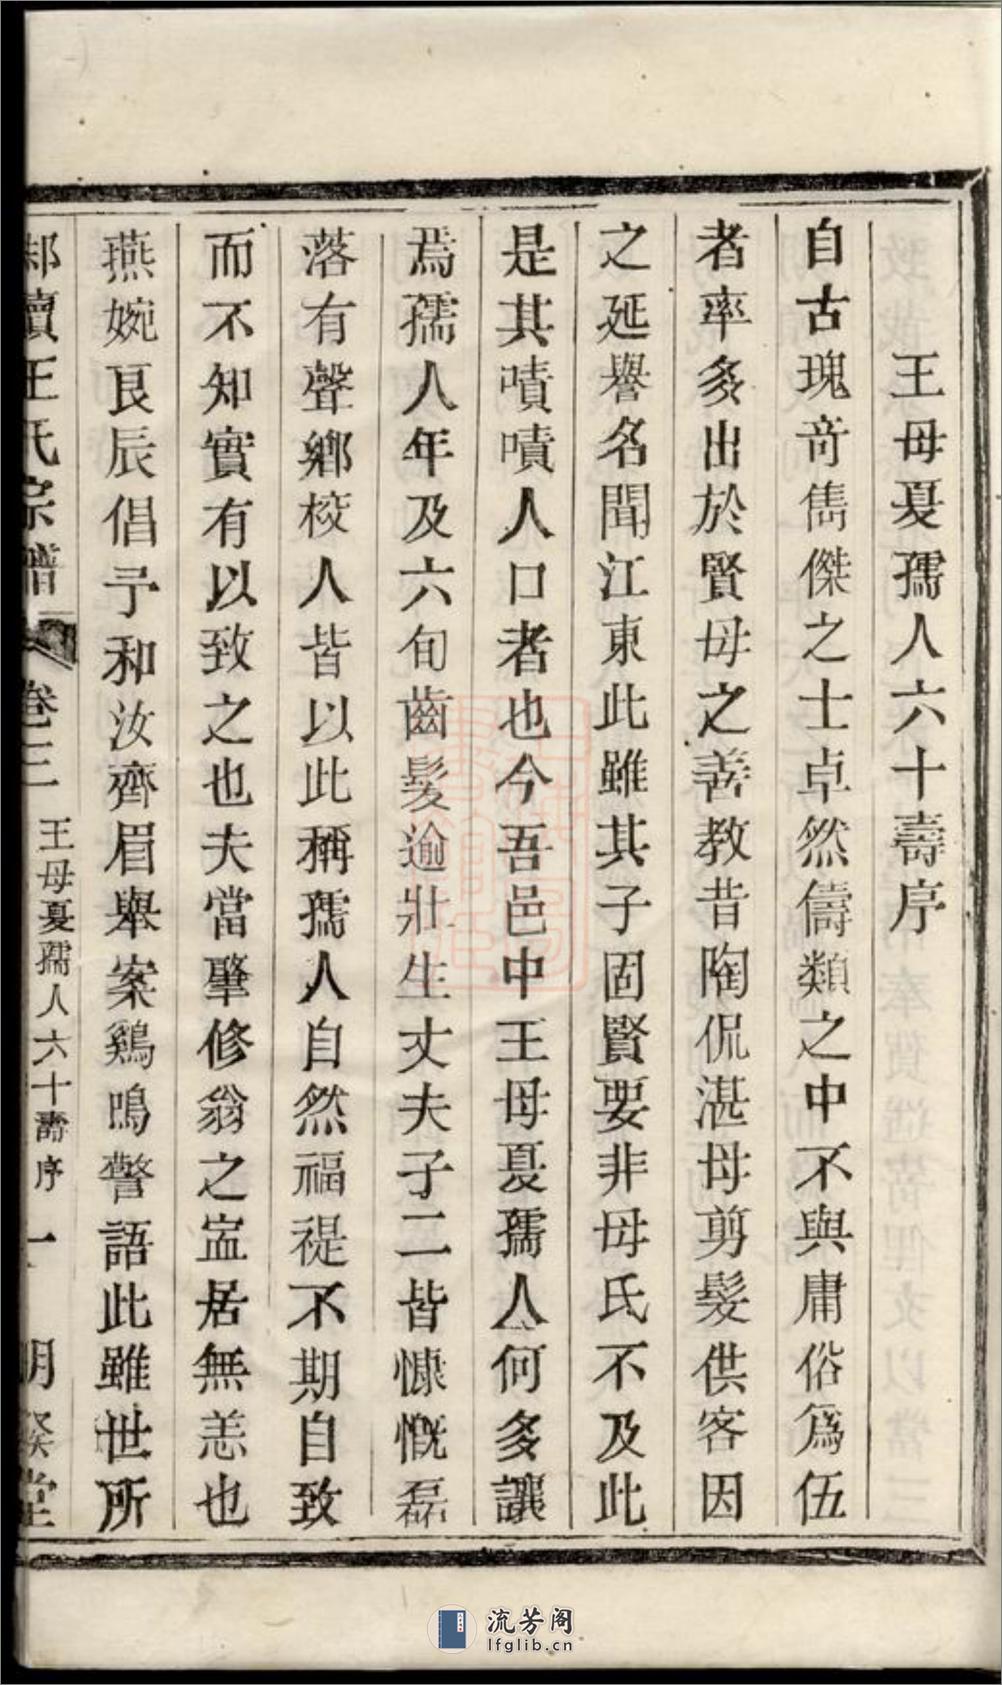 王母夏孺人六十壽序
自古瑰奇雋傑之士卓然儔類之中不與庸俗爲伍
者率多出於賢母之善教昔陶侃湛母剪髮供客因
之延譽名聞江東此雖其子固賢要非母氏不及此
是其嘖嘖人口者也今吾邑中王母夏孺人何多讓
焉孺人年及六旬齒髮逾壯生丈夫子二皆慷慨磊
落有聲鄉校人皆以此稱孺人自然福禔不期自致
而不知實有以致之也夫當肇修翁之寍居無恙也
燕婉良辰倡予和汝齊眉舉案鷄鳴警語此雖世所
瀆王氏宗譜 卷三 王母夏孺人六十壽序 一 堂
流芳阁
lfglib.cn